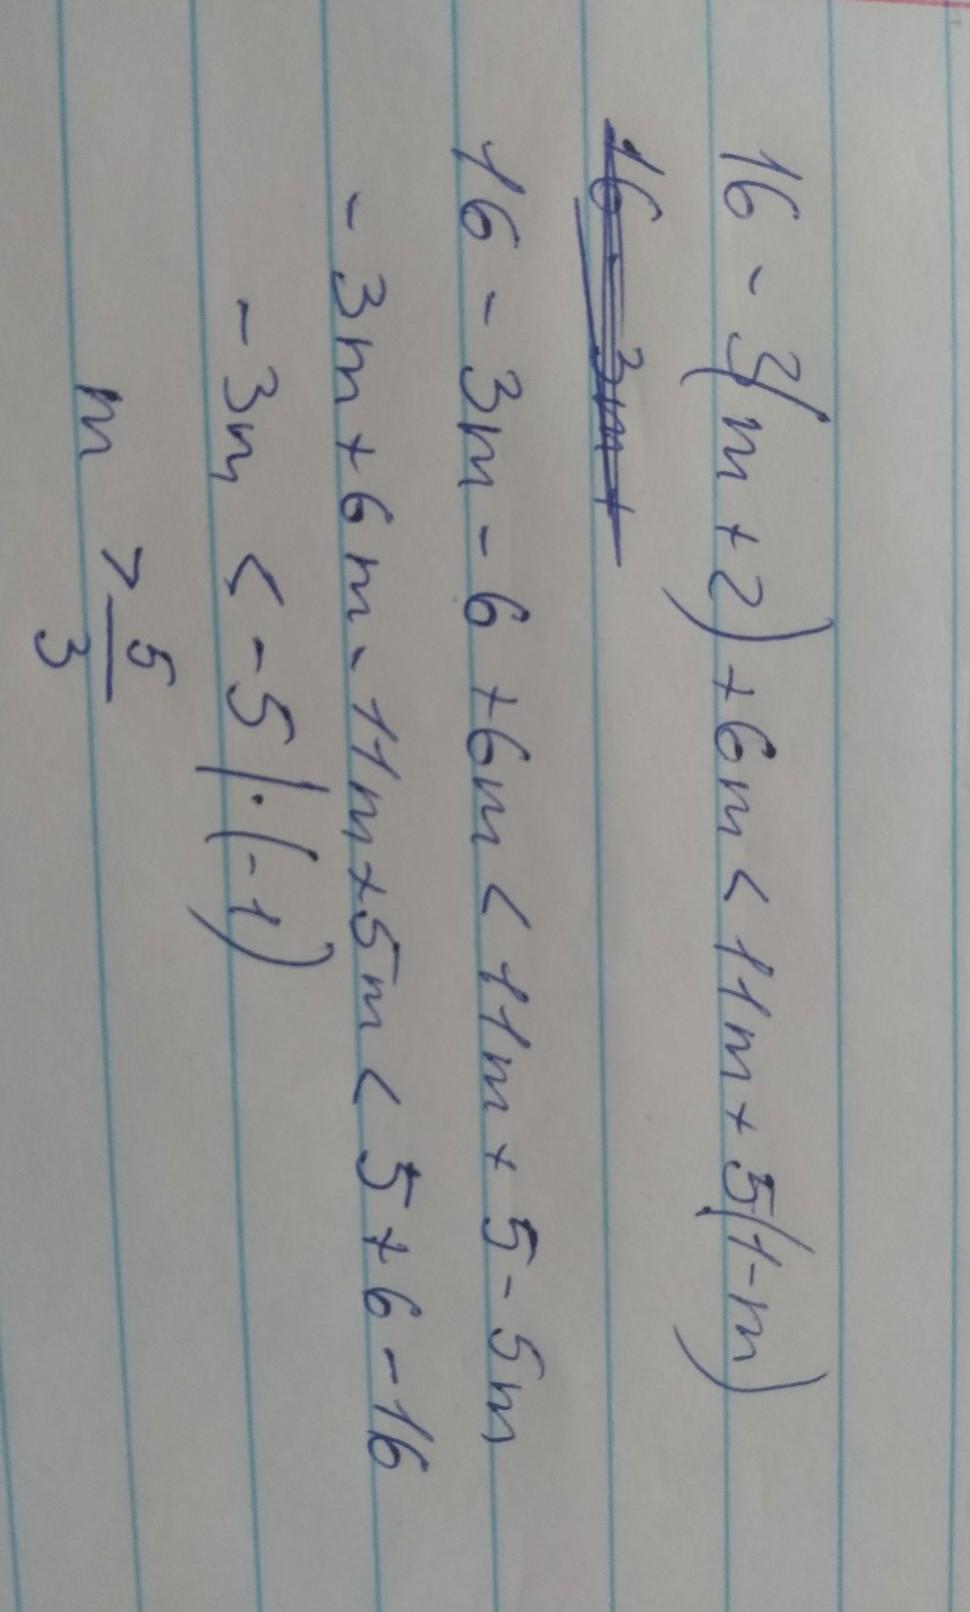 16 - 3(m + 2) + 6m < 11m + 5(1 - m)
16 - 3m +
16 - 3m - 6 + 6m < 11m + 5 - 5m
- 3m + 6m - 11m + 5m < 5 + 6 - 16
- 3m < - 5 | · (- 1)
m > 5/3